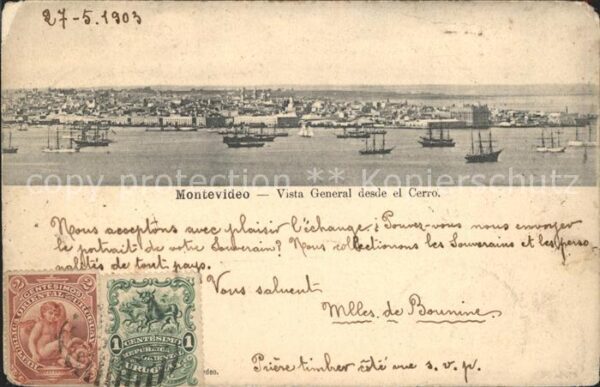 27-5.1903
Montevideo — Vista General desde el Cerro.
Nous acceptons avec plaisir l'échange. Pouvez-vous nous envoyer
le portrait de votre Souverain? Nous collectionnons les Souverains et les perso-
nalités de tout pays.
Vous saluent
Mlles. de Bounine.
Prière timber côté vue s. v. p.
2 CENTESIMOS 2
1 CENTESIMO 1
REPUBLICA
ORIENTAL
URUGUAY
copyright by